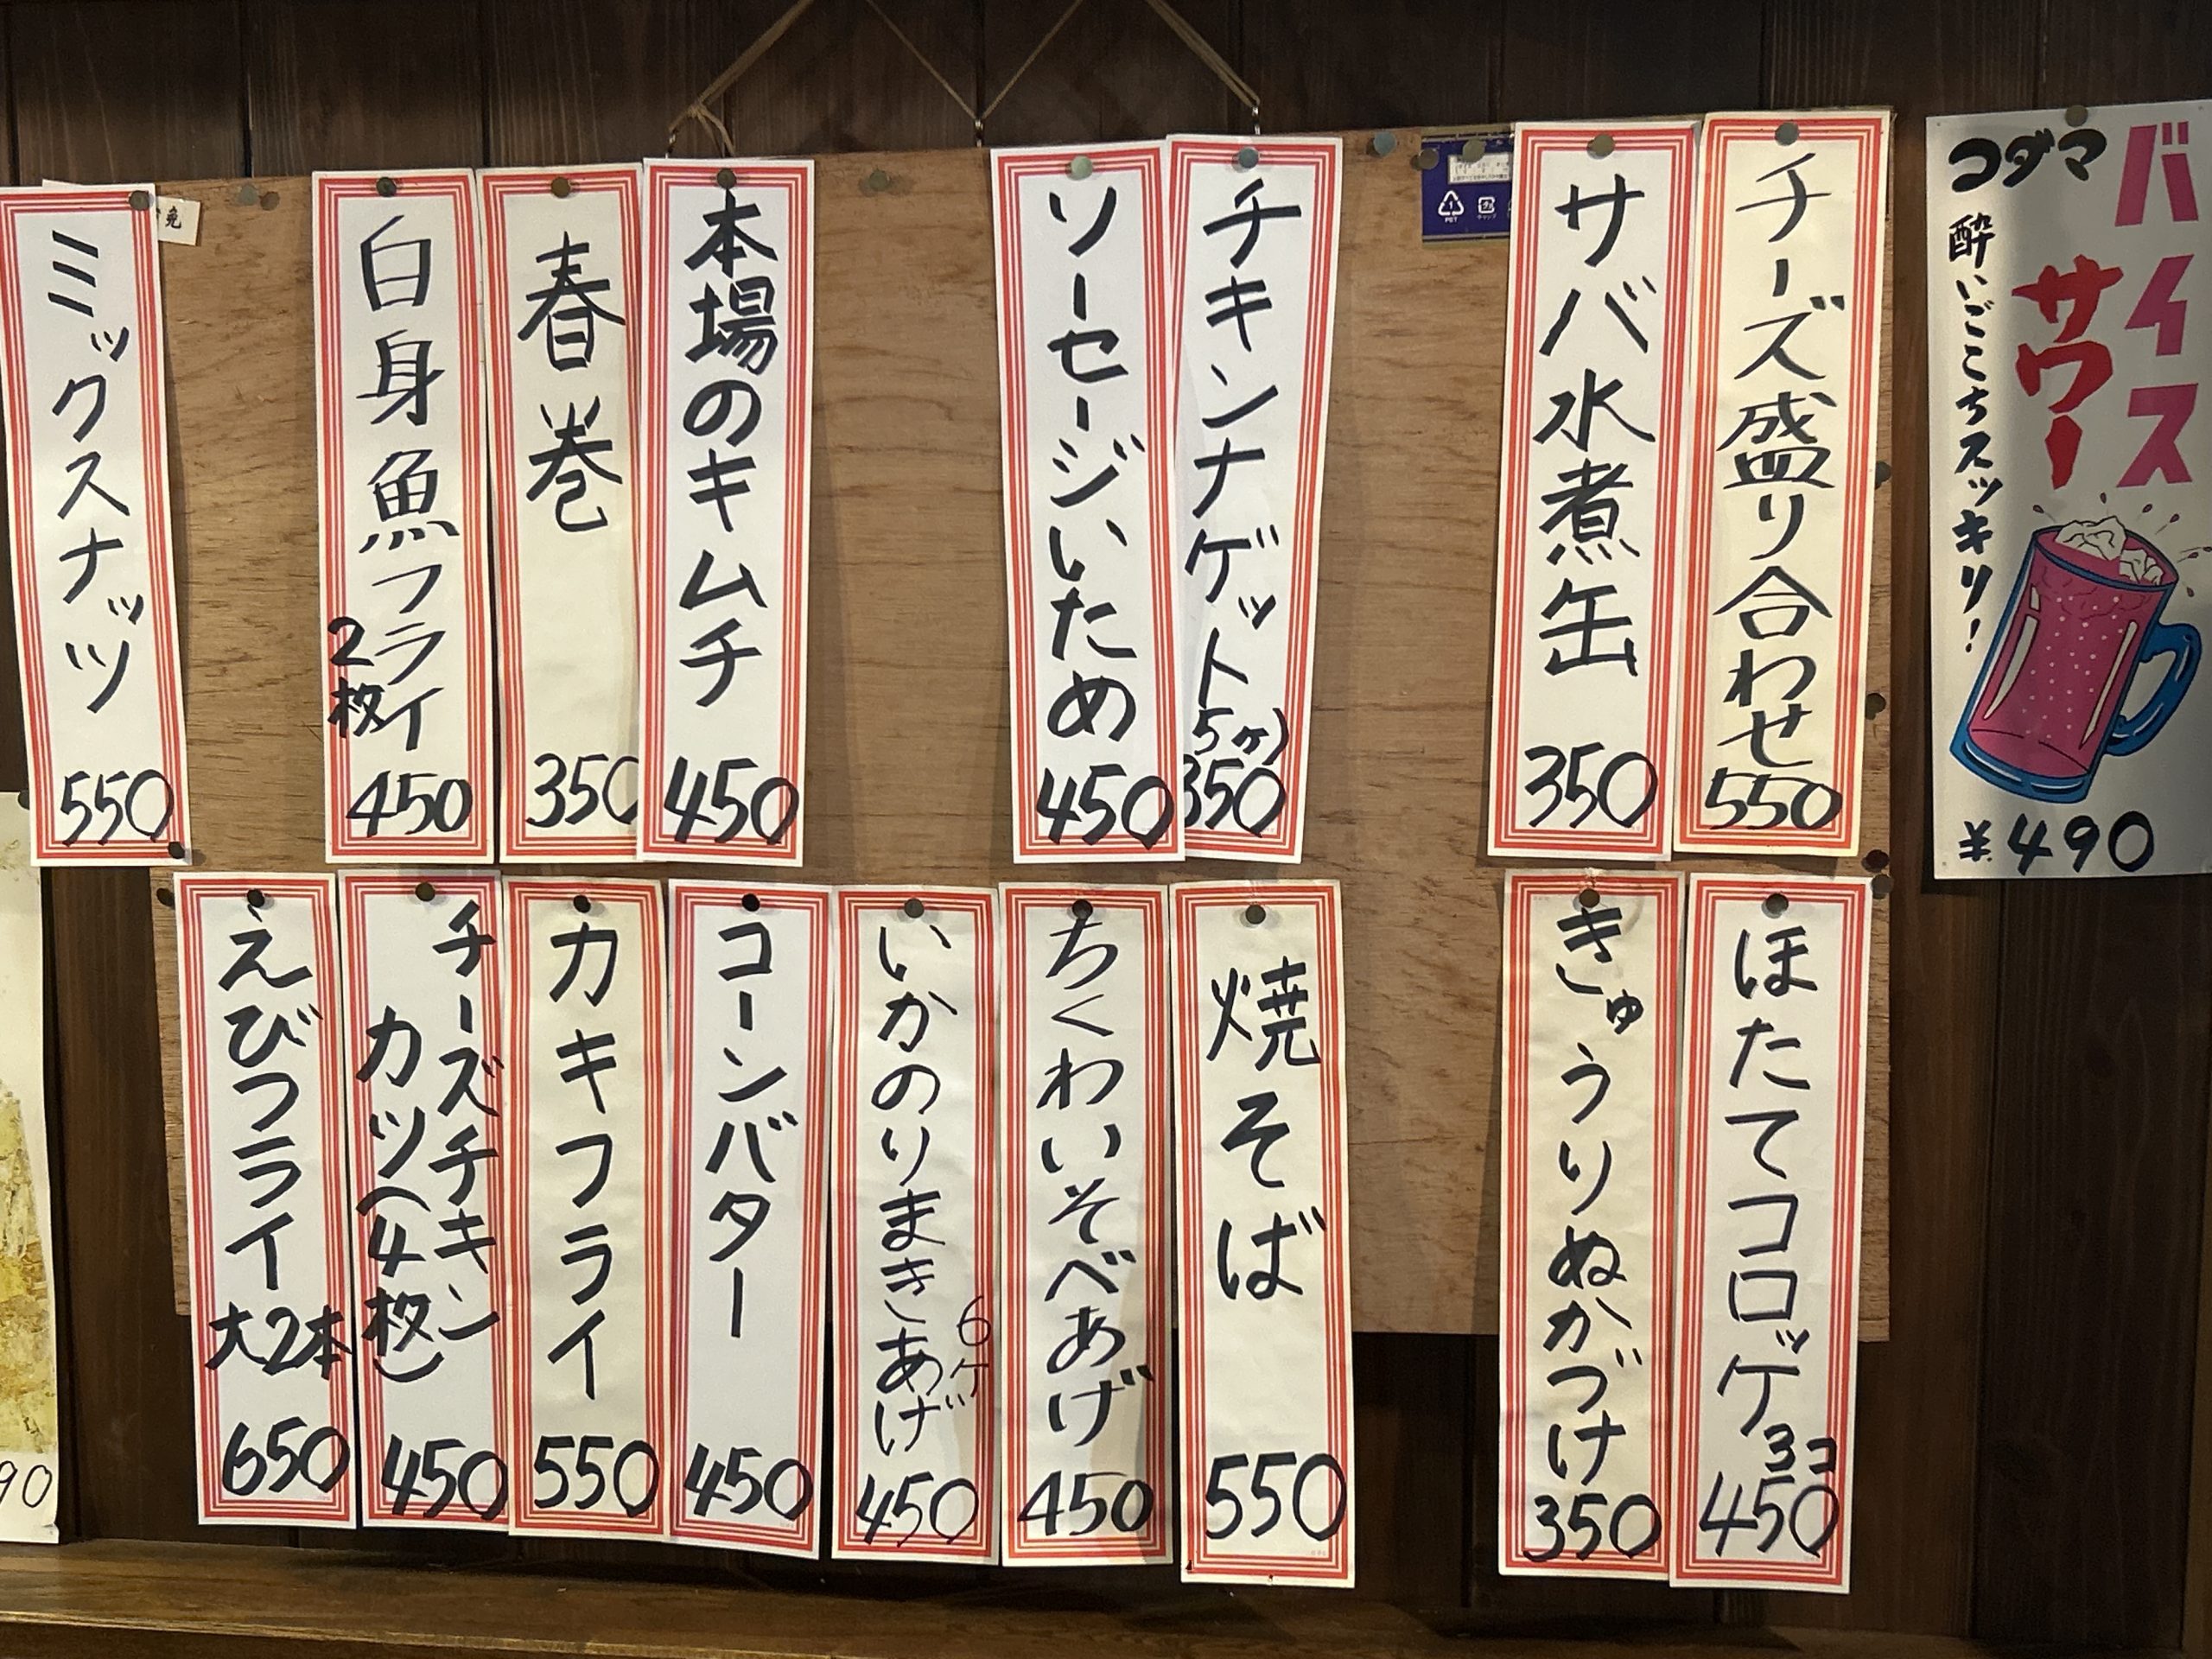 バイス
サワー
コダマ
酔いごこちスッキリ!
¥490
チーズ盛り合わせ
550
サバ水煮缶
350
チキンナゲット
5ヶ)
350
ソーセージいため
450
本場のキムチ
450
春巻
350
白身魚フライ
2枚
450
ミックスナッツ
550
ほたてコロッケ
3コ
450
きゅうりぬかづけ
350
焼そば
550
ちくわいそべあげ
450
いかのりまきあげ
6ケ
450
コーンバター
450
カキフライ
550
チーズチキン
カツ(4枚)
450
えびフライ
大2本
650
90